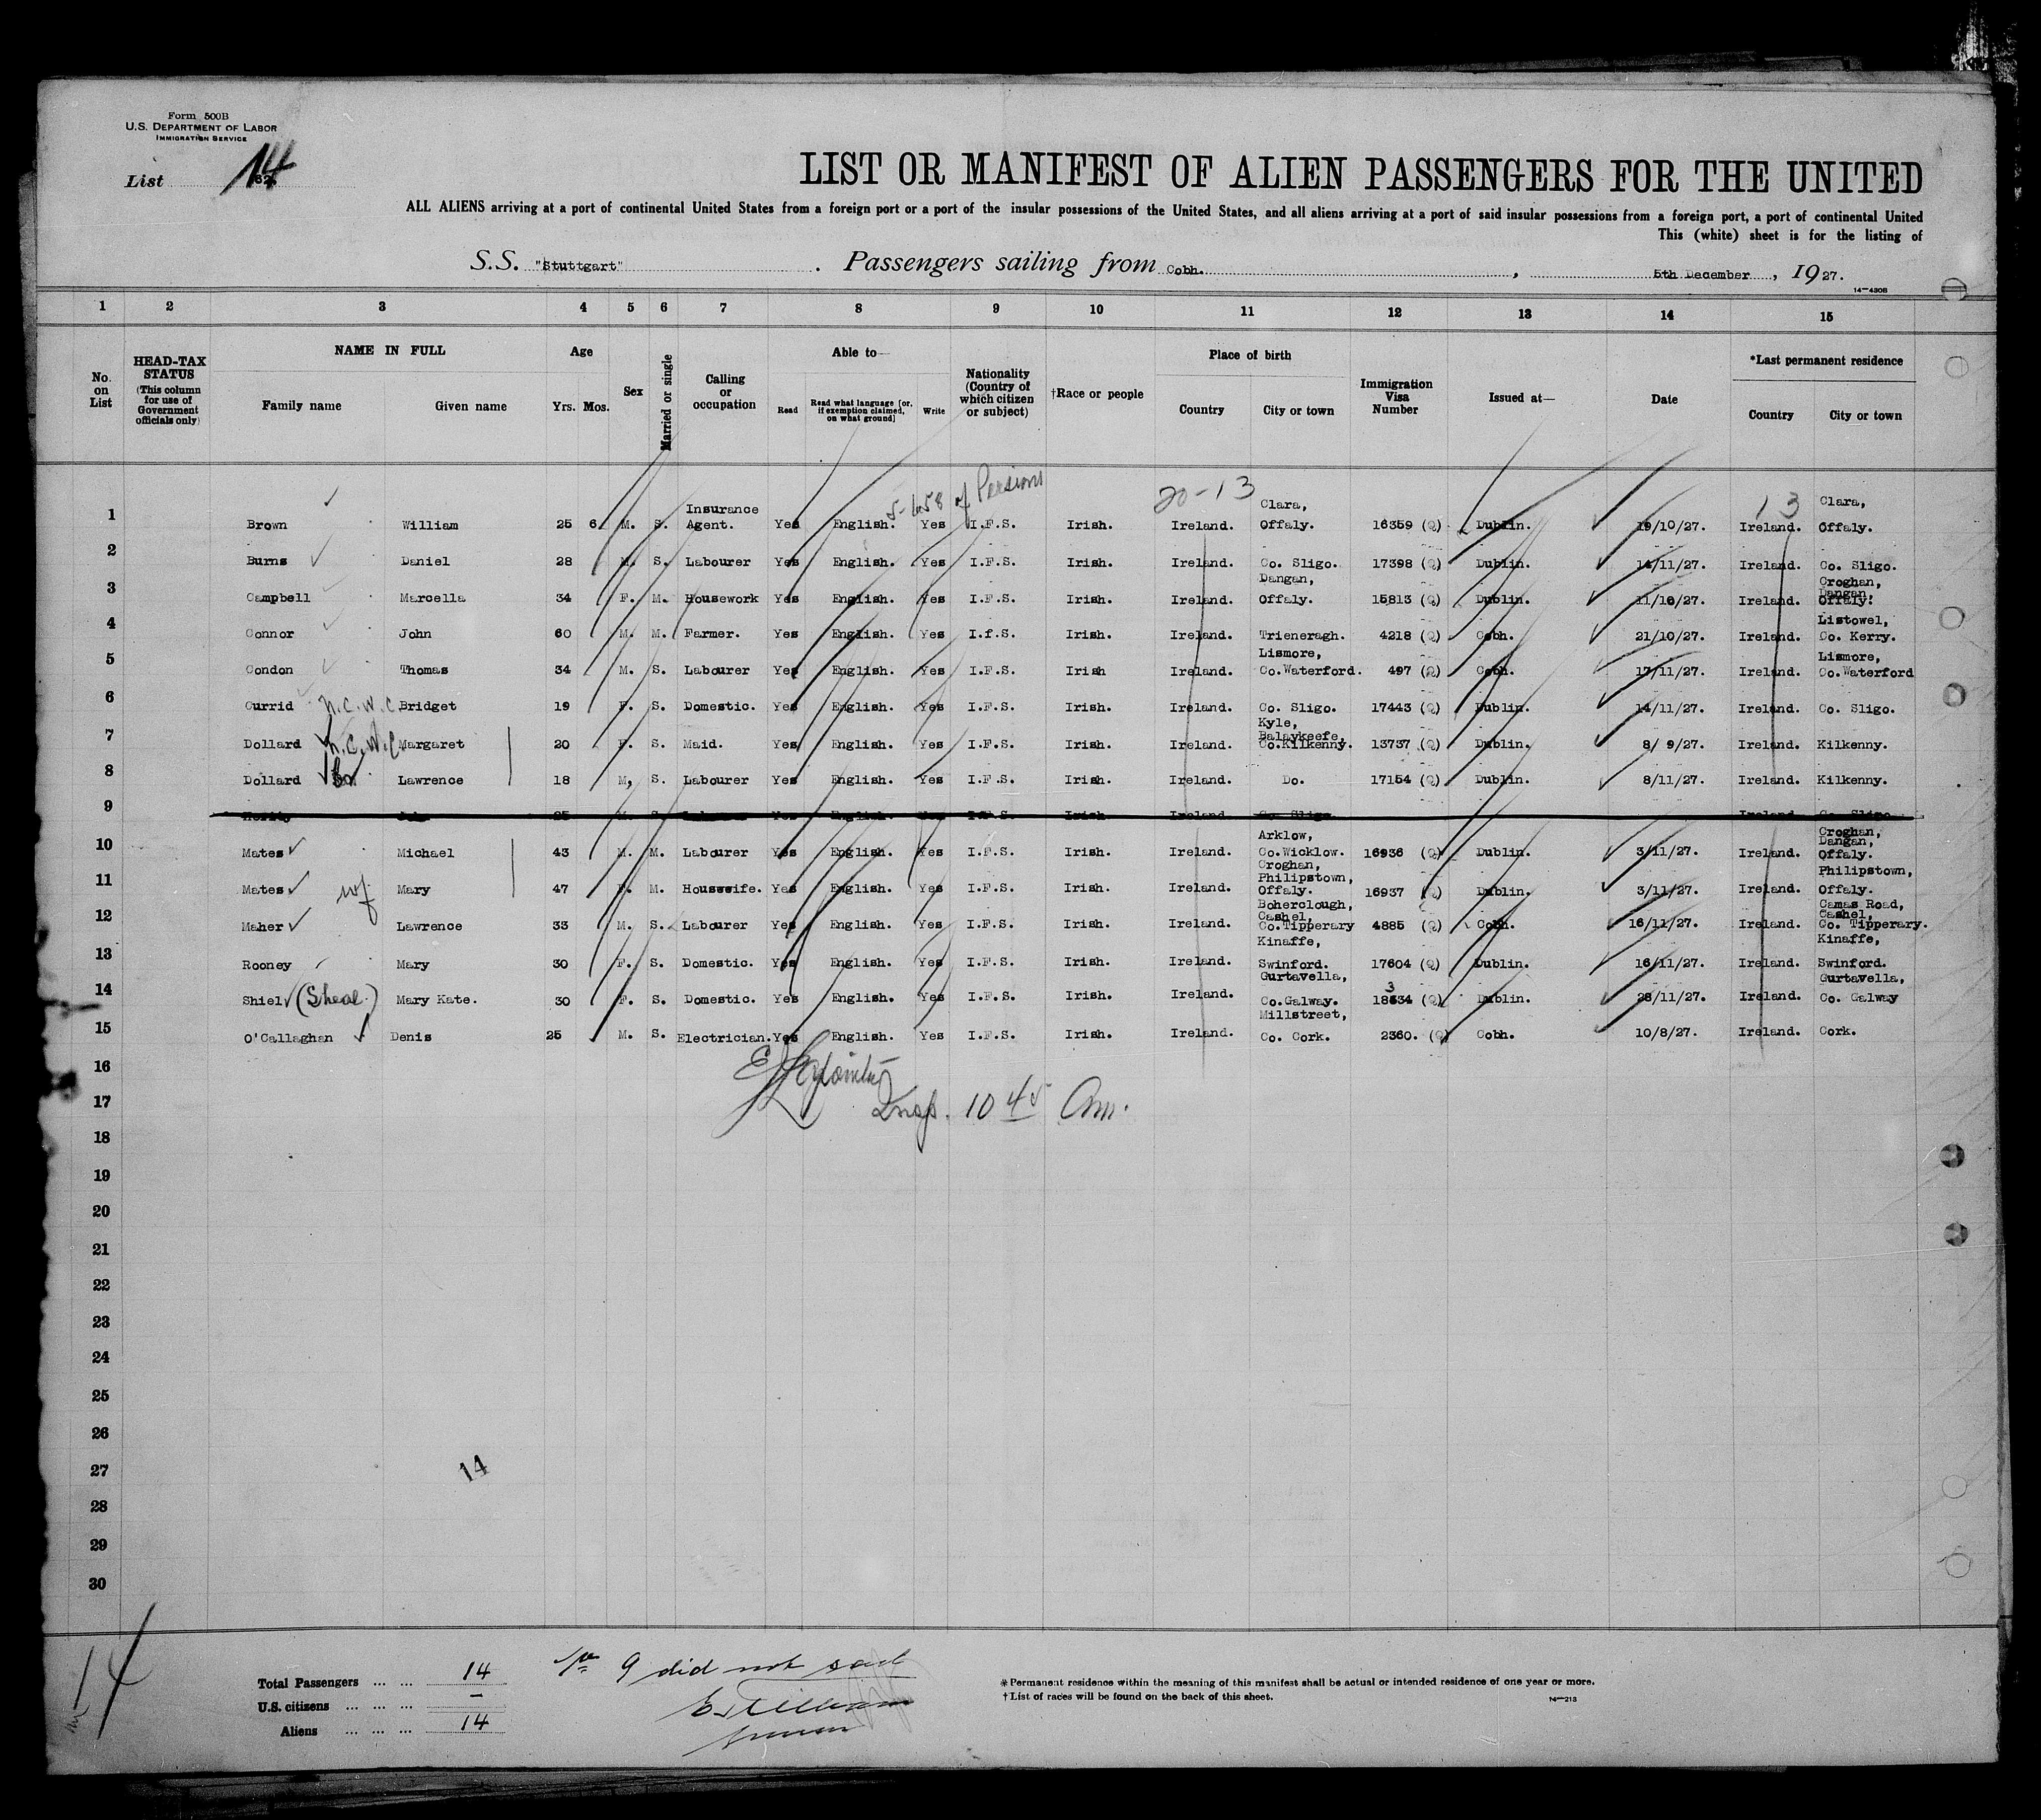 Form 500B
U.S. DEPARTMENT OF LABOR
IMMIGRATION SERVICE
List 14
LIST OR MANIFEST OF ALIEN PASSENGERS FOR THE UNITED
ALL ALIENS arriving at a port of continental United States from a foreign port or a port of the insular possessions of the United States, and all aliens arriving at a port of said insular possessions from a foreign port, a port of continental United
This (white) sheet is for the listing of
S.S. "Stuttgart" . Passengers sailing from Cobh. , 5th December , 1927.
14—430B
1 2 3 4 5 6 7 8 9 10 11 12 13 14 15
No. on List
HEAD-TAX STATUS (This column for use of Government officials only)
NAME IN FULL
Family name Given name
Age
Yrs. Mos.
Sex
Married or single
Calling or occupation
Able to—
Read
Read what language [or, if exemption claimed, on what ground]
Write
Nationality (Country of which citizen or subject)
†Race or people
Place of birth
Country City or town
Immigration Visa Number
Issued at—
Date
*Last permanent residence
Country City or town
5-658 of Persions
20-13
13
1 Brown William 25 6. M. S. Insurance Agent. Yes English. Yes I.F.S. Irish. Ireland. Clara, Offaly. 16359 (Q) Dublin. 19/10/27. Ireland. Clara, Offaly.
2 Burns Daniel 28 M. S. Labourer Yes English. Yes I.F.S. Irish. Ireland. Co. Sligo. 17398 (Q) Dublin. 14/11/27. Ireland. Co. Sligo.
3 Campbell Marcella 34 F. M. Housework Yes English. Yes I.F.S. Irish. Ireland. Dangan, Offaly. 15813 (Q) Dublin. 11/10/27. Ireland. Croghan, Dangan, Offaly.
4 Connor John 60 M. M. Farmer. Yes English. Yes I.f.S. Irish. Ireland. Trieneragh. 4218 (Q) Cobh. 21/10/27. Ireland. Listowel, Co. Kerry.
5 Condon Thomas 34 M. S. Labourer Yes English. Yes I.F.S. Irish Ireland. Lismore, Co.Waterford. 497 (Q) Cobh. 17/11/27. Ireland. Lismore, Co.Waterford
6 Currid N.C.W.C. Bridget 19 F. S. Domestic. Yes English. Yes I.F.S. Irish. Ireland. Co. Sligo. 17443 (Q) Dublin. 14/11/27. Ireland. Co. Sligo.
7 Dollard N.C.W.C. Margaret 20 F. S. Maid. Yes English. Yes I.F.S. Irish. Ireland. Kyle, Balaykeefe, Co.Kilkenny. 13737 (Q) Dublin. 8/ 9/27. Ireland. Kilkenny.
8 Dollard Br Lawrence 18 M, S. Labourer Yes English. Yes I.F.S. Irish. Ireland. Do. 17154 (Q) Dublin. 8/11/27. Ireland. Kilkenny.
9 John 25 M. S. Labourer Yes English. Yes I.F.S. Irish. Ireland. Co. Sligo. Ireland. Co. Sligo.
10 Mates Michael 43 M. M. Labourer Yes English. Yes I.F.S. Irish. Ireland. Arklow, Co.Wicklow. 16936 (Q) Dublin. 3/11/27. Ireland. Croghan, Dangan, Offaly.
11 Mates wf Mary 47 F. M. Housewife. Yes English. Yes I.F.S. Irish. Ireland. Croghan, Philipstown, Offaly. 16937 (Q) Dublin. 3/11/27. Ireland. Philipstown, Offaly.
12 Maher Lawrence 33 M. S. Labourer Yes English. Yes I.F.S. Irish. Ireland. Boherclough, Cashel, Co.Tipperary 4885 (Q) Cobh. 16/11/27. Ireland. Camas Road, Cashel, Co. Tipperary.
13 Rooney Mary 30 F. S. Domestic. Yes English. Yes I.F.S. Irish. Ireland. Kinaffe, Swinford. 17604 (Q) Dublin. 16/11/27. Ireland. Kinaffe, Swinford.
14 Shiel (Sheal) Mary Kate. 30 F. S. Domestic. Yes English. Yes I.F.S. Irish. Ireland. Gurtavella, Co.Galway. 18634 3 (Q) Dublin. 28/11/27. Ireland. Gurtavella, Co. Galway
15 O'Callaghan Denis 25 M. S. Electrician. Yes English. Yes I.F.S. Irish. Ireland. Millstreet, Co. Cork. 2360. (Q) Cobh. 10/8/27. Ireland. Cork.
16
17 Insp. 10 45 Am.
18
19
20
21
22
23
24
25
26
27 14
28
29
30
14
Total Passengers ... ... 14
U.S. citizens ... ... ... —
Aliens ... ... ... 14
No 9 did not sail
*Permanent residence within the meaning of this manifest shall be actual or intended residence of one year or more.
†List of races will be found on the back of this sheet.
14—213